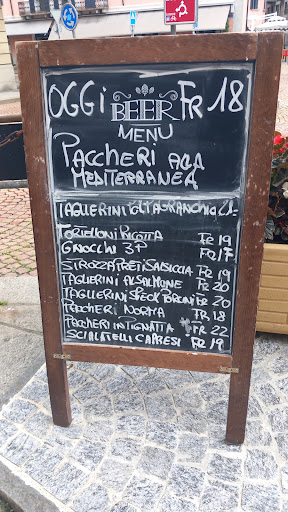 OGGI BEER FR 18
MENU
PACCHERI ALLA
MEDITERRANEA
TAGLERINI POLPA GRANCHIO 21.-
TORTELLONI RICOTTA FR 19
GNOCCHI 3P FR 17
STROZZAPRETI SALSICCIA FR 19
TAGLIERINI AL SALMONE FR 20
TAGLIERINI SPECK BRUNI FR 20
PACCHERI NORMA FR 18
PACCHERI IN PIGNATTA FR 22
SCIALATELLI CAPRESI FR 19